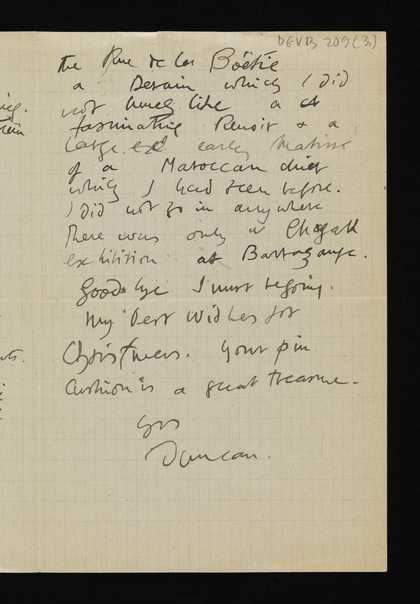 DEVB 209(3)
the Rue de la Boëtie
a Derain which I did
not much like a
fascinating Renoir & a
large early Matisse
of a Maroccan chief
which I had seen before.
I did not go in anywhere
there was only a Chagall
exhibition at
Goodbye I must be going.
My Best Wishes for
Christmas. Your pin
cushion is a great treasure.
Yrs
Duncan.